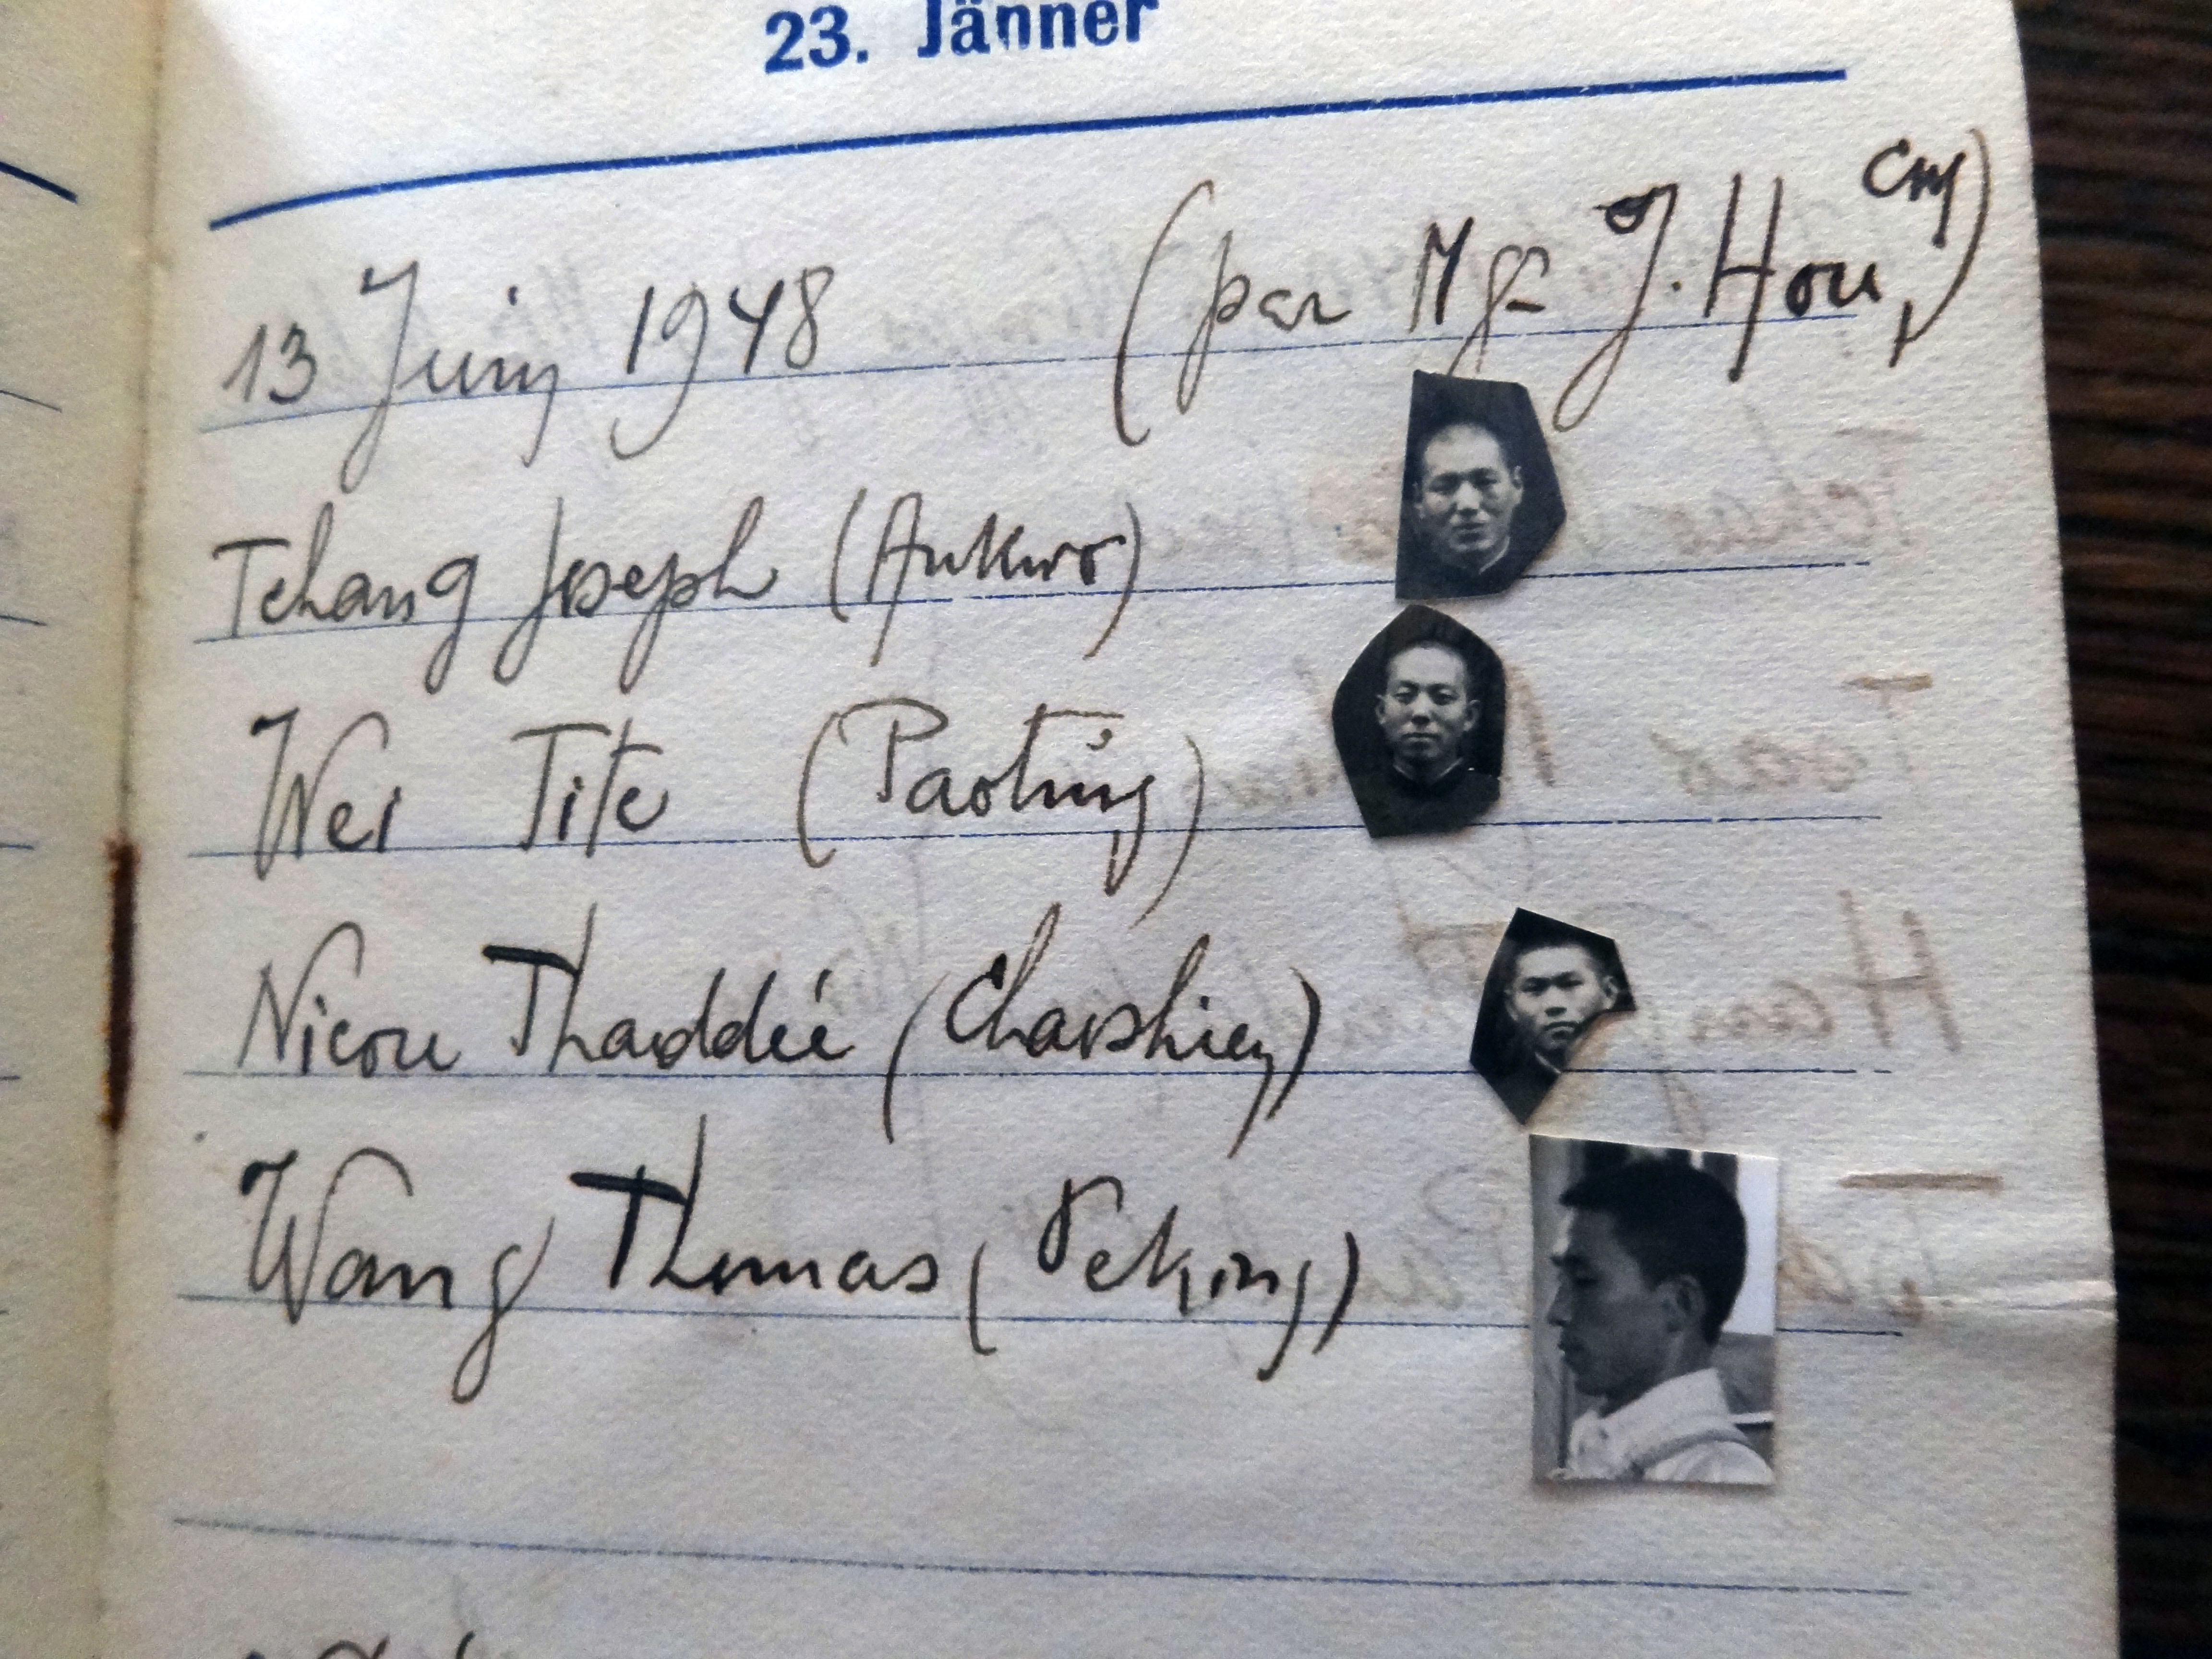 23. Jänner
13 Juin 1948 (par Mgr J. Hou, CM)
Tchang Joseph (Ankwo)
Wei Tite (Paoting)
Nieou Thaddée (Chaoshien)
Wang Thomas (Peking)